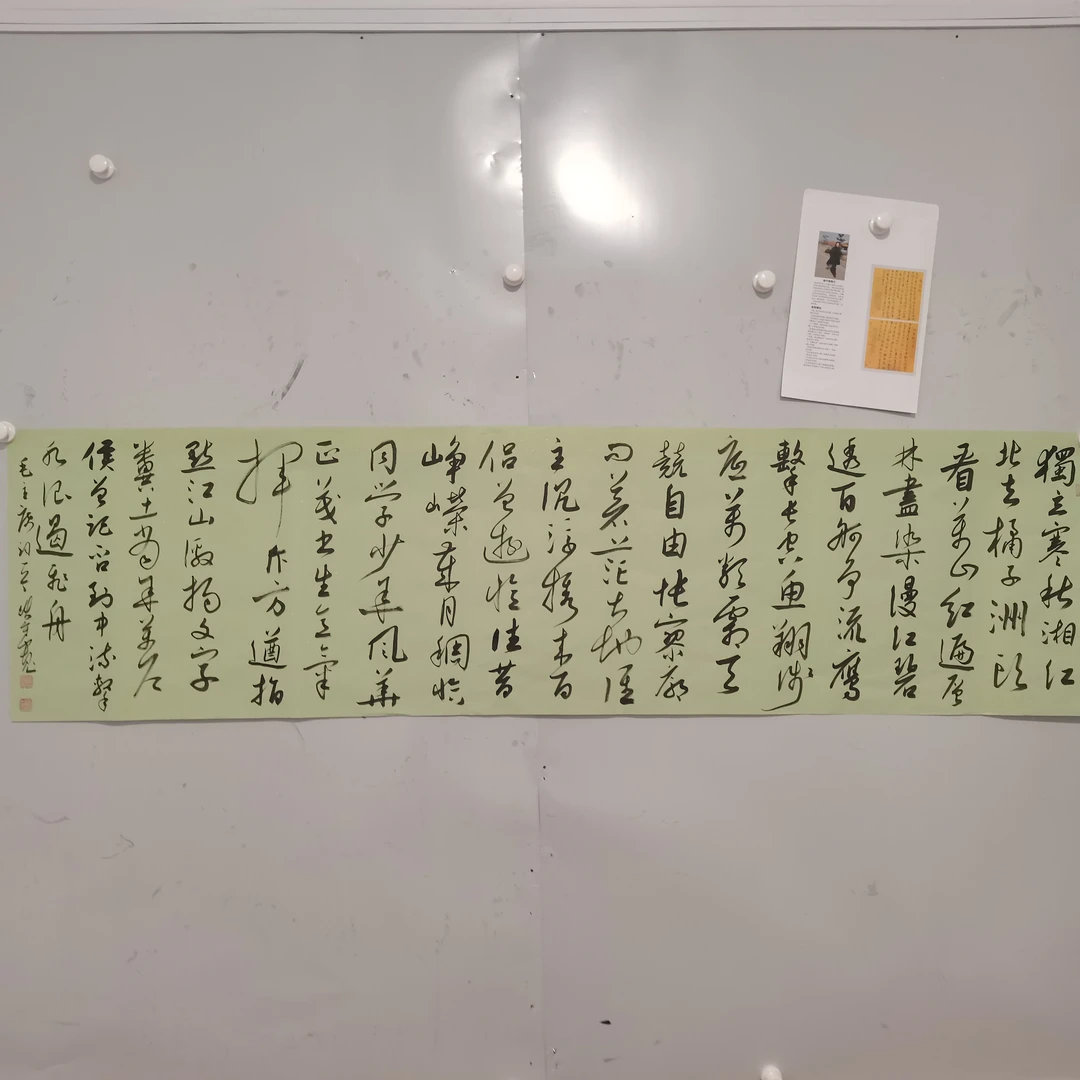 獨立寒秋湘江
北去橘子洲頭
看萬山紅遍層
林盡染漫江碧
透百舸争流鹰
擊長空魚翔淺
底萬類霜天
競自由悵寥廓
问蒼茫大地谁
主沉浮携来百
侣曾遊憶往昔
崢嶸歲月稠恰
同学少年风華
正茂书生意氣
揮斥方遒指
點江山激揚文字
糞土当年萬户
侯曾記否到中流擊
水浪遏飛舟
毛主席词一首